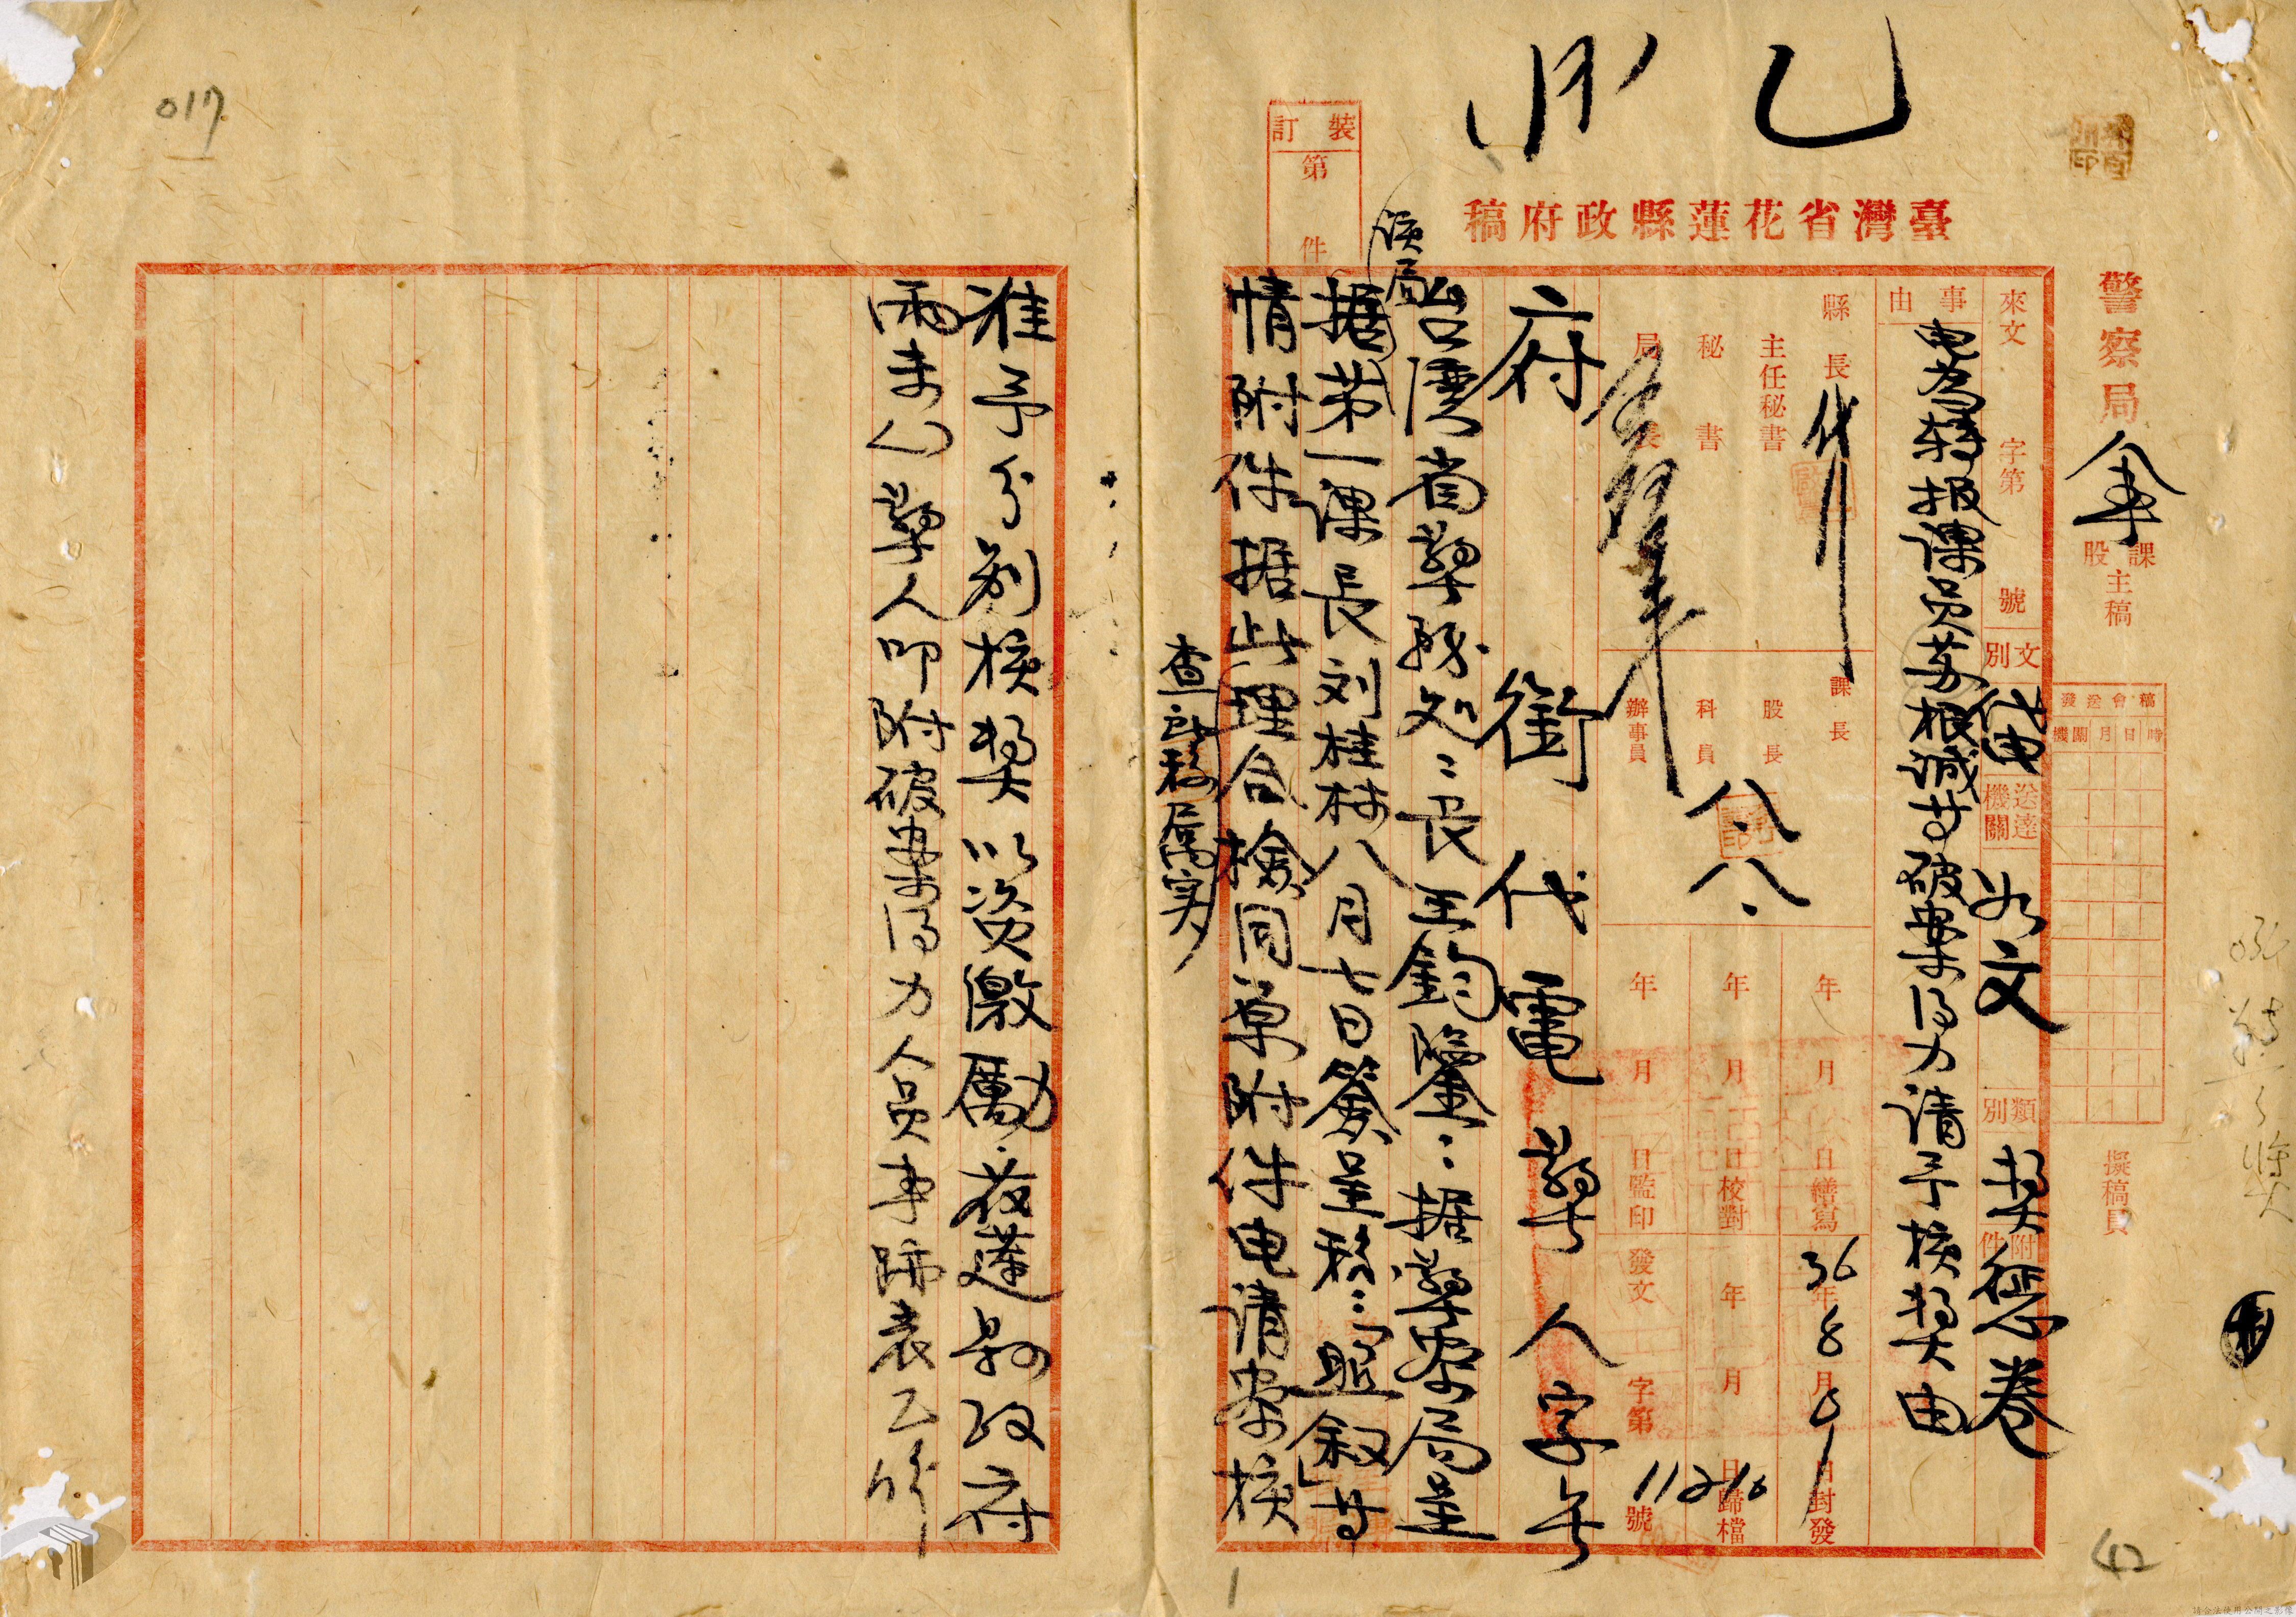 乙
臺灣省花蓮縣政府稿
裝訂
第 件
警察局
課
股
主稿
擬稿員
稿會送發
時日月關機
來文 字第 號
文別 代電
送達機關 如文
類別 獎懲卷
附件
事由
電為轉報課員 根誠等破案得力請予核獎由
縣長
主任秘書
秘書
局長
課長
股長
科員
辦事員
八.八.
年 月 日繕寫
年 月 日校對
年 月 日監印
36年8月 日封發
年 月 日歸檔
發文 字第 號
府銜代電 警人字第
台灣省警務处=長王鈞鑒:據警察局呈
該局
据第一課長刘桂林八月七日簽呈称:「照叙」等
情附件据此理合檢同原附件电請察核
查所称屬实
准予分別核獎以資激勵.花蓮县政府
警人叩附破案得力人員事跡表乙份
017
42
1